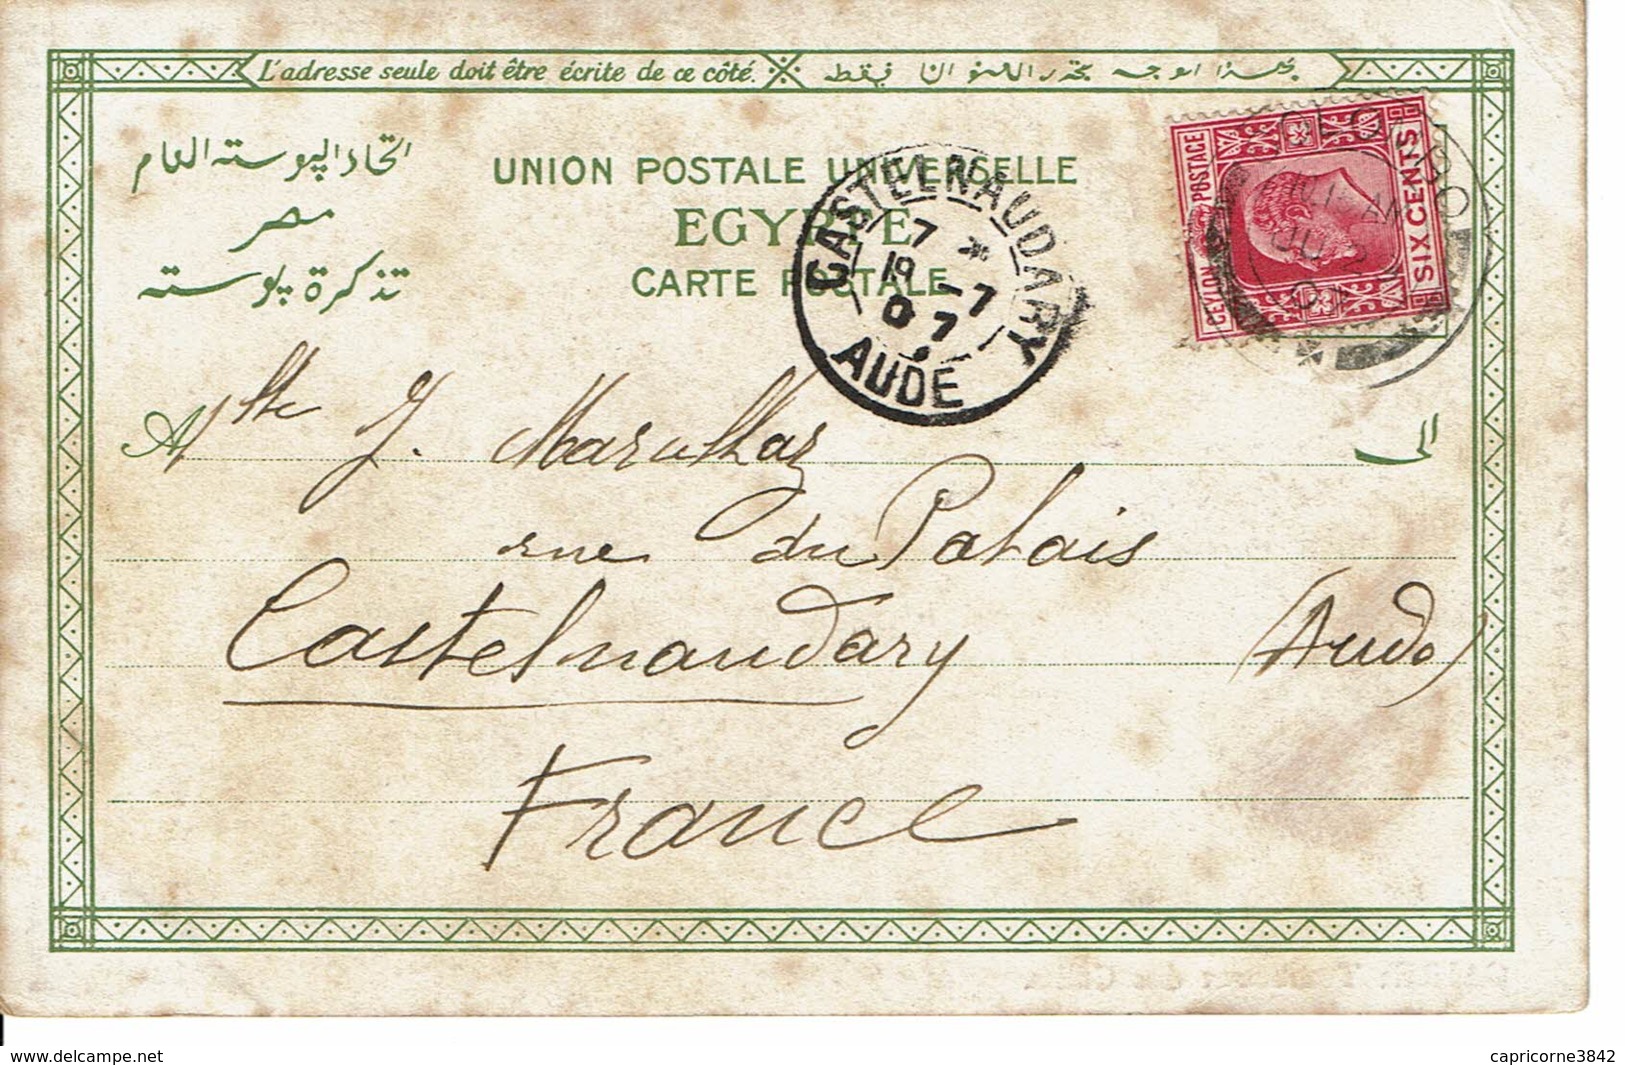 L'adresse seule doit être écrite de ce côté.
اتحاد البوسته العام
مصر
تذكرة بوسته
UNION POSTALE UNIVERSELLE
EGYPTE
CARTE POSTALE
CEYLON POSTAGE
SIX CENTS
COLOMBO
CASTELNAUDARY
7 *
19 -7
07
AUDE
A
الى
J.
rue du Palais
Castelnaudary (Aude)
France
capricorne3842
delcampe.net